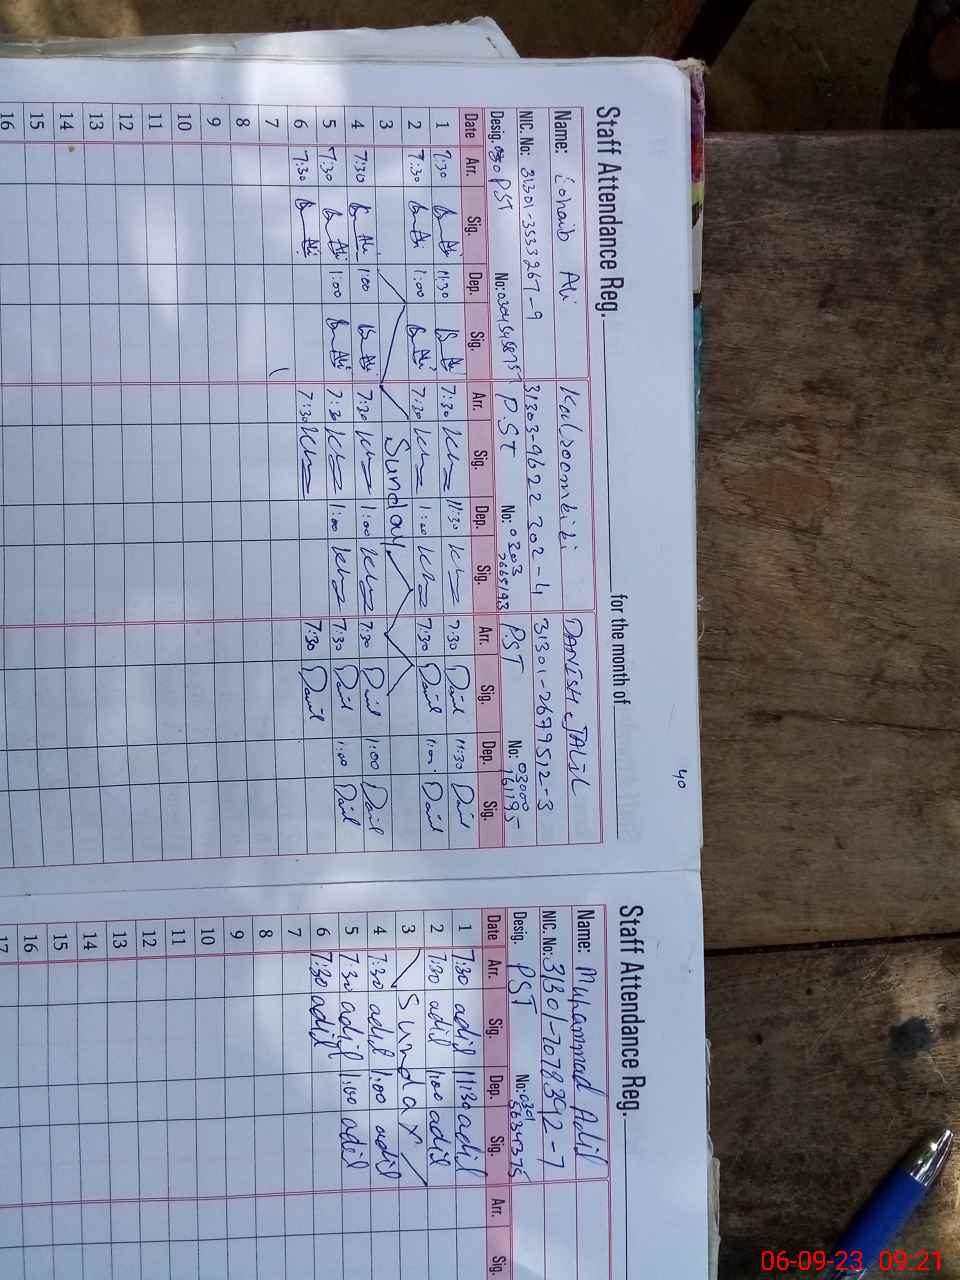 40
Staff Attendance Reg. for the month of
Name: Zohaib Ali Kalsoom bibi DANISH JALIL
NIC. No: 31301-3533267-9 31303-9622302-4 31301-2679512-3
Desig. PST No: P.ST No: 0303 7665193 PST No: 03000 161195
Date Arr. Sig. Dep. Sig. Arr. Sig. Dep. Sig. Arr. Sig. Dep. Sig.
1 7:30 11:30 7:30 11:30 7:30 Danil 11:30 Danil
2 7:30 1:00 7:30 1:00 7:30 Danil 1:00 Danil
3 Sunday
4 7:30 1:00 7:30 1:00 7:30 Danil 1:00 Danil
5 7:30 1:00 7:30 1:00 7:30 Danil 1:00 Danil
6 7:30 7:30 7:30 Danil
7
8
9
10
11
12
13
14
15
16
Staff Attendance Reg.
Name: Muhammad Adil
NIC. No: 31301-7078392-7
Desig. PST No: 0301 5634375
Date Arr. Sig. Dep. Sig. Arr. Sig.
1 7:30 adil 11:30 adil
2 7:30 adil 1:00 adil
3 Sunday
4 7:30 adil 1:00 adil
5 7:30 adil 1:00 adil
6 7:30 adil
7
8
9
10
11
12
13
14
15
16
17
06-09-23 09:21